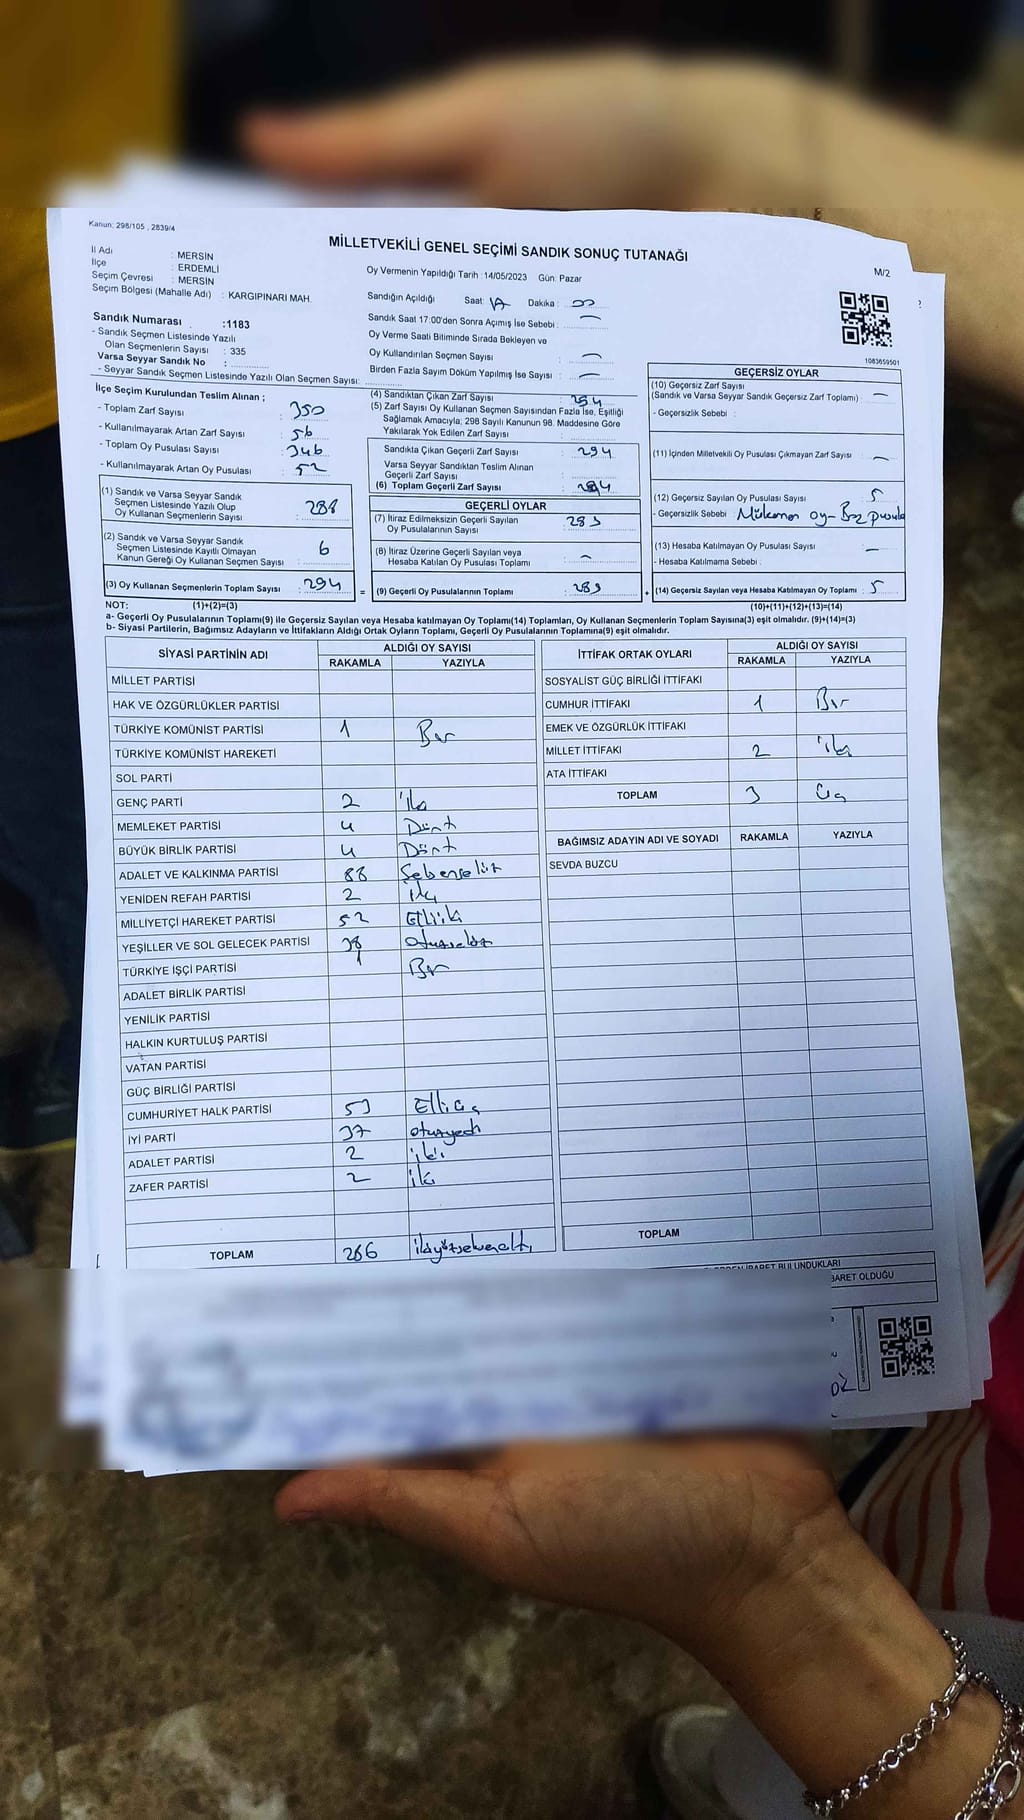 Kanun; 298/105 , 2839/4
MİLLETVEKİLİ GENEL SEÇİMİ SANDIK SONUÇ TUTANAĞI
M/2
İl Adı : MERSİN
İlçe : ERDEMLİ
Seçim Çevresi : MERSİN
Seçim Bölgesi (Mahalle Adı) : KARGIPINARI MAH.
Oy Vermenin Yapıldığı Tarih : 14/05/2023 Gün: Pazar
Sandığın Açıldığı Saat: 17 Dakika : 00
Sandık Saat 17:00'den Sonra Açımış İse Sebebi :
Oy Verme Saati Bitiminde Sırada Bekleyen ve
Oy Kullandırılan Seçmen Sayısı : —
Birden Fazla Sayım Döküm Yapılmış İse Sayısı : —
Sandık Numarası :1183
- Sandık Seçmen Listesinde Yazılı
Olan Seçmenlerin Sayısı : 335
Varsa Seyyar Sandık No :
- Seyyar Sandık Seçmen Listesinde Yazılı Olan Seçmen Sayısı:
1083659501
İlçe Seçim Kurulundan Teslim Alınan ;
- Toplam Zarf Sayısı : 350
- Kullanılmayarak Artan Zarf Sayısı : 56
- Toplam Oy Pusulası Sayısı : 346
- Kullanılmayarak Artan Oy Pusulası : 52
(1) Sandık ve Varsa Seyyar Sandık
Seçmen Listesinde Yazılı Olup
Oy Kullanan Seçmenlerin Sayısı : 288
(2) Sandık ve Varsa Seyyar Sandık
Seçmen Listesinde Kayıtlı Olmayan
Kanun Gereği Oy Kullanan Seçmen Sayısı : 6
(3) Oy Kullanan Seçmenlerin Toplam Sayısı : 294
=
(4) Sandıktan Çıkan Zarf Sayısı : 294
(5) Zarf Sayısı Oy Kullanan Seçmen Sayısından Fazla İse, Eşitliği
Sağlamak Amacıyla; 298 Sayılı Kanunun 98. Maddesine Göre
Yakılarak Yok Edilen Zarf Sayısı :
Sandıkta Çıkan Geçerli Zarf Sayısı : 294
Varsa Seyyar Sandıktan Teslim Alınan
Geçerli Zarf Sayısı :
(6) Toplam Geçerli Zarf Sayısı : 294
GEÇERLİ OYLAR
(7) İtiraz Edilmeksizin Geçerli Sayılan
Oy Pusulalarının Sayısı : 289
(8) İtiraz Üzerine Geçerli Sayılan veya
Hesaba Katılan Oy Pusulası Toplamı : —
(9) Geçerli Oy Pusulalarının Toplamı : 289
+
GEÇERSİZ OYLAR
(10) Geçersiz Zarf Sayısı
(Sandık ve Varsa Seyyar Sandık Geçersiz Zarf Toplamı) : —
- Geçersizlik Sebebi :
(11) İçinden Milletvekili Oy Pusulası Çıkmayan Zarf Sayısı : —
(12) Geçersiz Sayılan Oy Pusulası Sayısı : 5
- Geçersizlik Sebebi : oy-Boş pusula
(13) Hesaba Katılmayan Oy Pusulası Sayısı : —
- Hesaba Katılmama Sebebi :
(14) Geçersiz Sayılan veya Hesaba Katılmayan Oy Pusulası Toplamı : 5
NOT: (1)+(2)=(3)
(10)+(11)+(12)+(13)=(14)
a- Geçerli Oy Pusulalarının Toplamı(9) ile Geçersiz Sayılan veya Hesaba katılmayan Oy Toplamı(14) Toplamları, Oy Kullanan Seçmenlerin Toplam Sayısına(3) eşit olmalıdır. (9)+(14)=(3)
b- Siyasi Partilerin, Bağımsız Adayların ve İttifakların Aldığı Ortak Oyların Toplamı, Geçerli Oy Pusulalarının Toplamına(9) eşit olmalıdır.
SİYASİ PARTİNİN ADI ALDIĞI OY SAYISI
RAKAMLA YAZIYLA
MİLLET PARTİSİ
HAK VE ÖZGÜRLÜKLER PARTİSİ
TÜRKİYE KOMÜNİST PARTİSİ 1 Bir
TÜRKİYE KOMÜNİST HAREKETİ
SOL PARTİ
GENÇ PARTİ 2 iki
MEMLEKET PARTİSİ 4 Dört
BÜYÜK BİRLİK PARTİSİ 4 Dört
ADALET VE KALKINMA PARTİSİ 88 Seksensekiz
YENİDEN REFAH PARTİSİ 2 iki
MİLLİYETÇİ HAREKET PARTİSİ 52 Elliiki
YEŞİLLER VE SOL GELECEK PARTİSİ 38 otuzsekiz
TÜRKİYE İŞÇİ PARTİSİ 1 Bir
ADALET BİRLİK PARTİSİ
YENİLİK PARTİSİ
HALKIN KURTULUŞ PARTİSİ
VATAN PARTİSİ
GÜÇ BİRLİĞİ PARTİSİ
CUMHURİYET HALK PARTİSİ 53 Elliüç
İYİ PARTİ 37 otuzyedi
ADALET PARTİSİ 2 iki
ZAFER PARTİSİ 2 iki
TOPLAM 286 ikiyüzseksenaltı
İTTİFAK ORTAK OYLARI ALDIĞI OY SAYISI
RAKAMLA YAZIYLA
SOSYALİST GÜÇ BİRLİĞİ İTTİFAKI
CUMHUR İTTİFAKI 1 Bir
EMEK VE ÖZGÜRLÜK İTTİFAKI
MİLLET İTTİFAKI 2 iki
ATA İTTİFAKI
TOPLAM 3 üç
BAĞIMSIZ ADAYIN ADI VE SOYADI RAKAMLA YAZIYLA
SEVDA BUZCU
TOPLAM
İBARET BULUNDUKLARI
BARET OLDUĞU